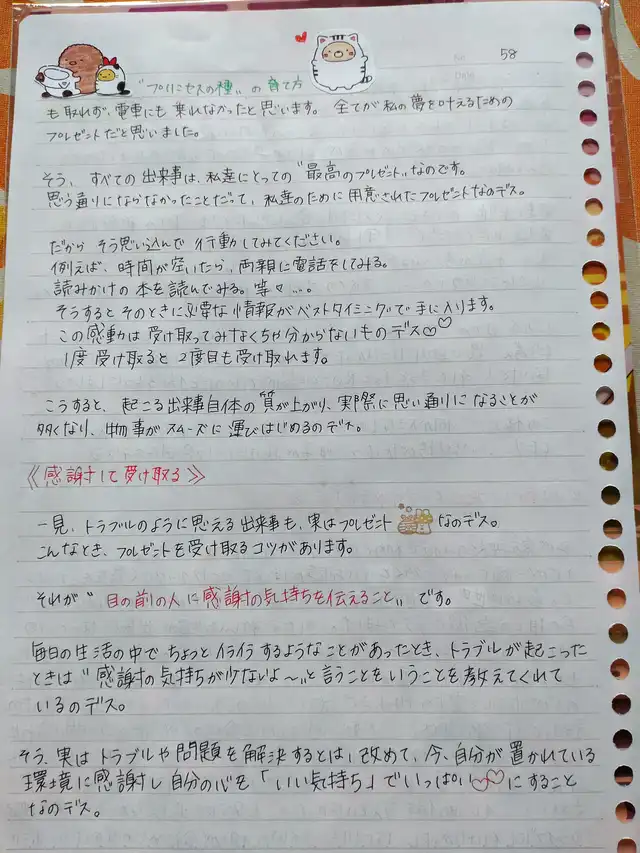 58
"プリンセスの種" の育て方
も取れず、電車にも乗れなかったと思います。全てが私の夢を叶えるための
プレゼントだと思いました。
そう、すべての出来事は、私達にとっての"最高のプレゼント"なのです。
思う通りにならなかったことだって、私達のために用意されたプレゼントなのデス。
だから そう思い込んで 行動してみてください。
例えば、時間が空いたら、両親に電話をしてみる。
読みかけの本を読んでみる。等々…。
そうするとそのときに必要な情報がベストタイミングで手に入ります。
この感動は受け取ってみなくちゃ分からないものデス♡♡
1度受け取ると2度目も受け取れます。
こうすると、起こる出来事自体の質が上がり、実際に思い通りになることが
多くなり、物事がスムーズに運びはじめるのデス。
《感謝して受け取る》
一見、トラブルのように思える出来事も、実はプレゼントなのデス。
こんなとき、プレゼントを受け取るコツがあります。
それが"目の前の人に感謝の気持ちを伝えること"です。
毎日の生活の中でちょっとイライラするようなことがあったとき、トラブルが起こった
ときは"感謝の気持ちが少ないよ〜"と言うことをいうことを教えてくれて
いるのデス。
そう、実はトラブルや問題を解決するとは、改めて、今、自分が置かれている
環境に感謝し自分の心を「いい気持ち」でいっぱい♡♡にすること
なのデス。